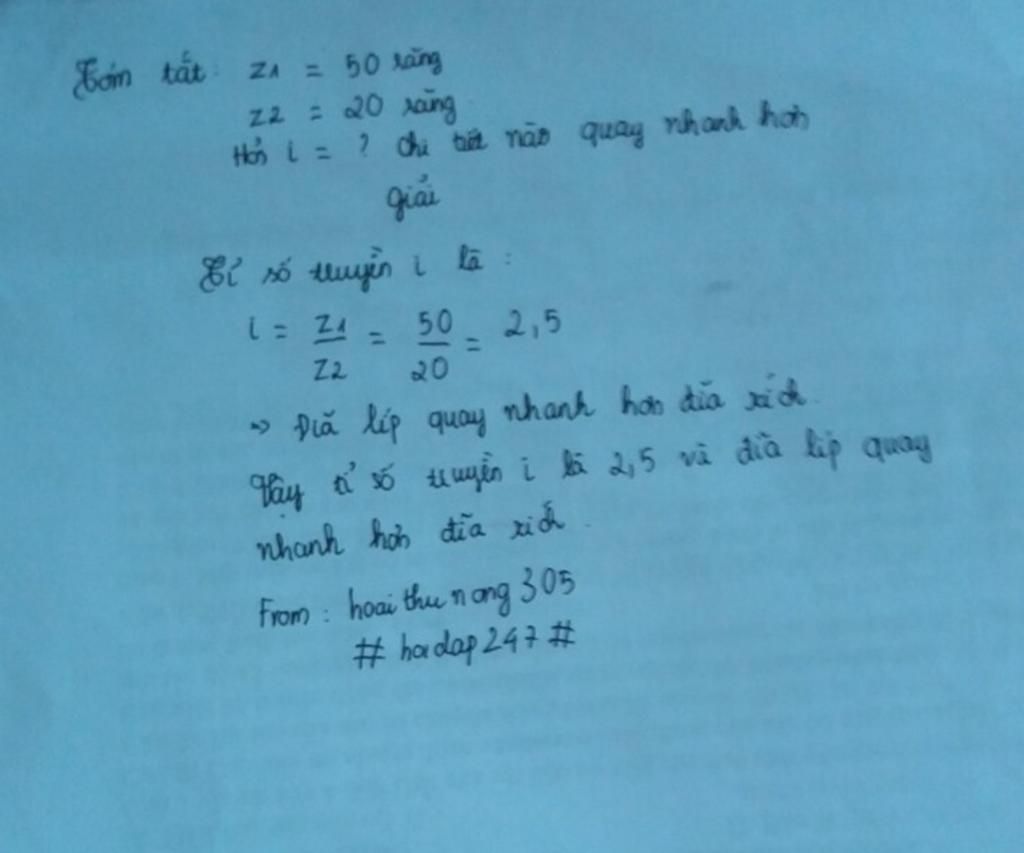 Tóm tắt: Z1 = 50 răng
Z2 = 20 răng
Hỏi i = ? chi tiết nào quay nhanh hơn
Giải
Tỉ số truyền i là :
i = Z1/Z2 = 50/20 = 2,5
=> Đĩa líp quay nhanh hơn đĩa xích.
Vậy tỉ số truyền i là 2,5 và đĩa líp quay
nhanh hơn đĩa xích.
From : hoai thu nong 305
# hoidap247 #